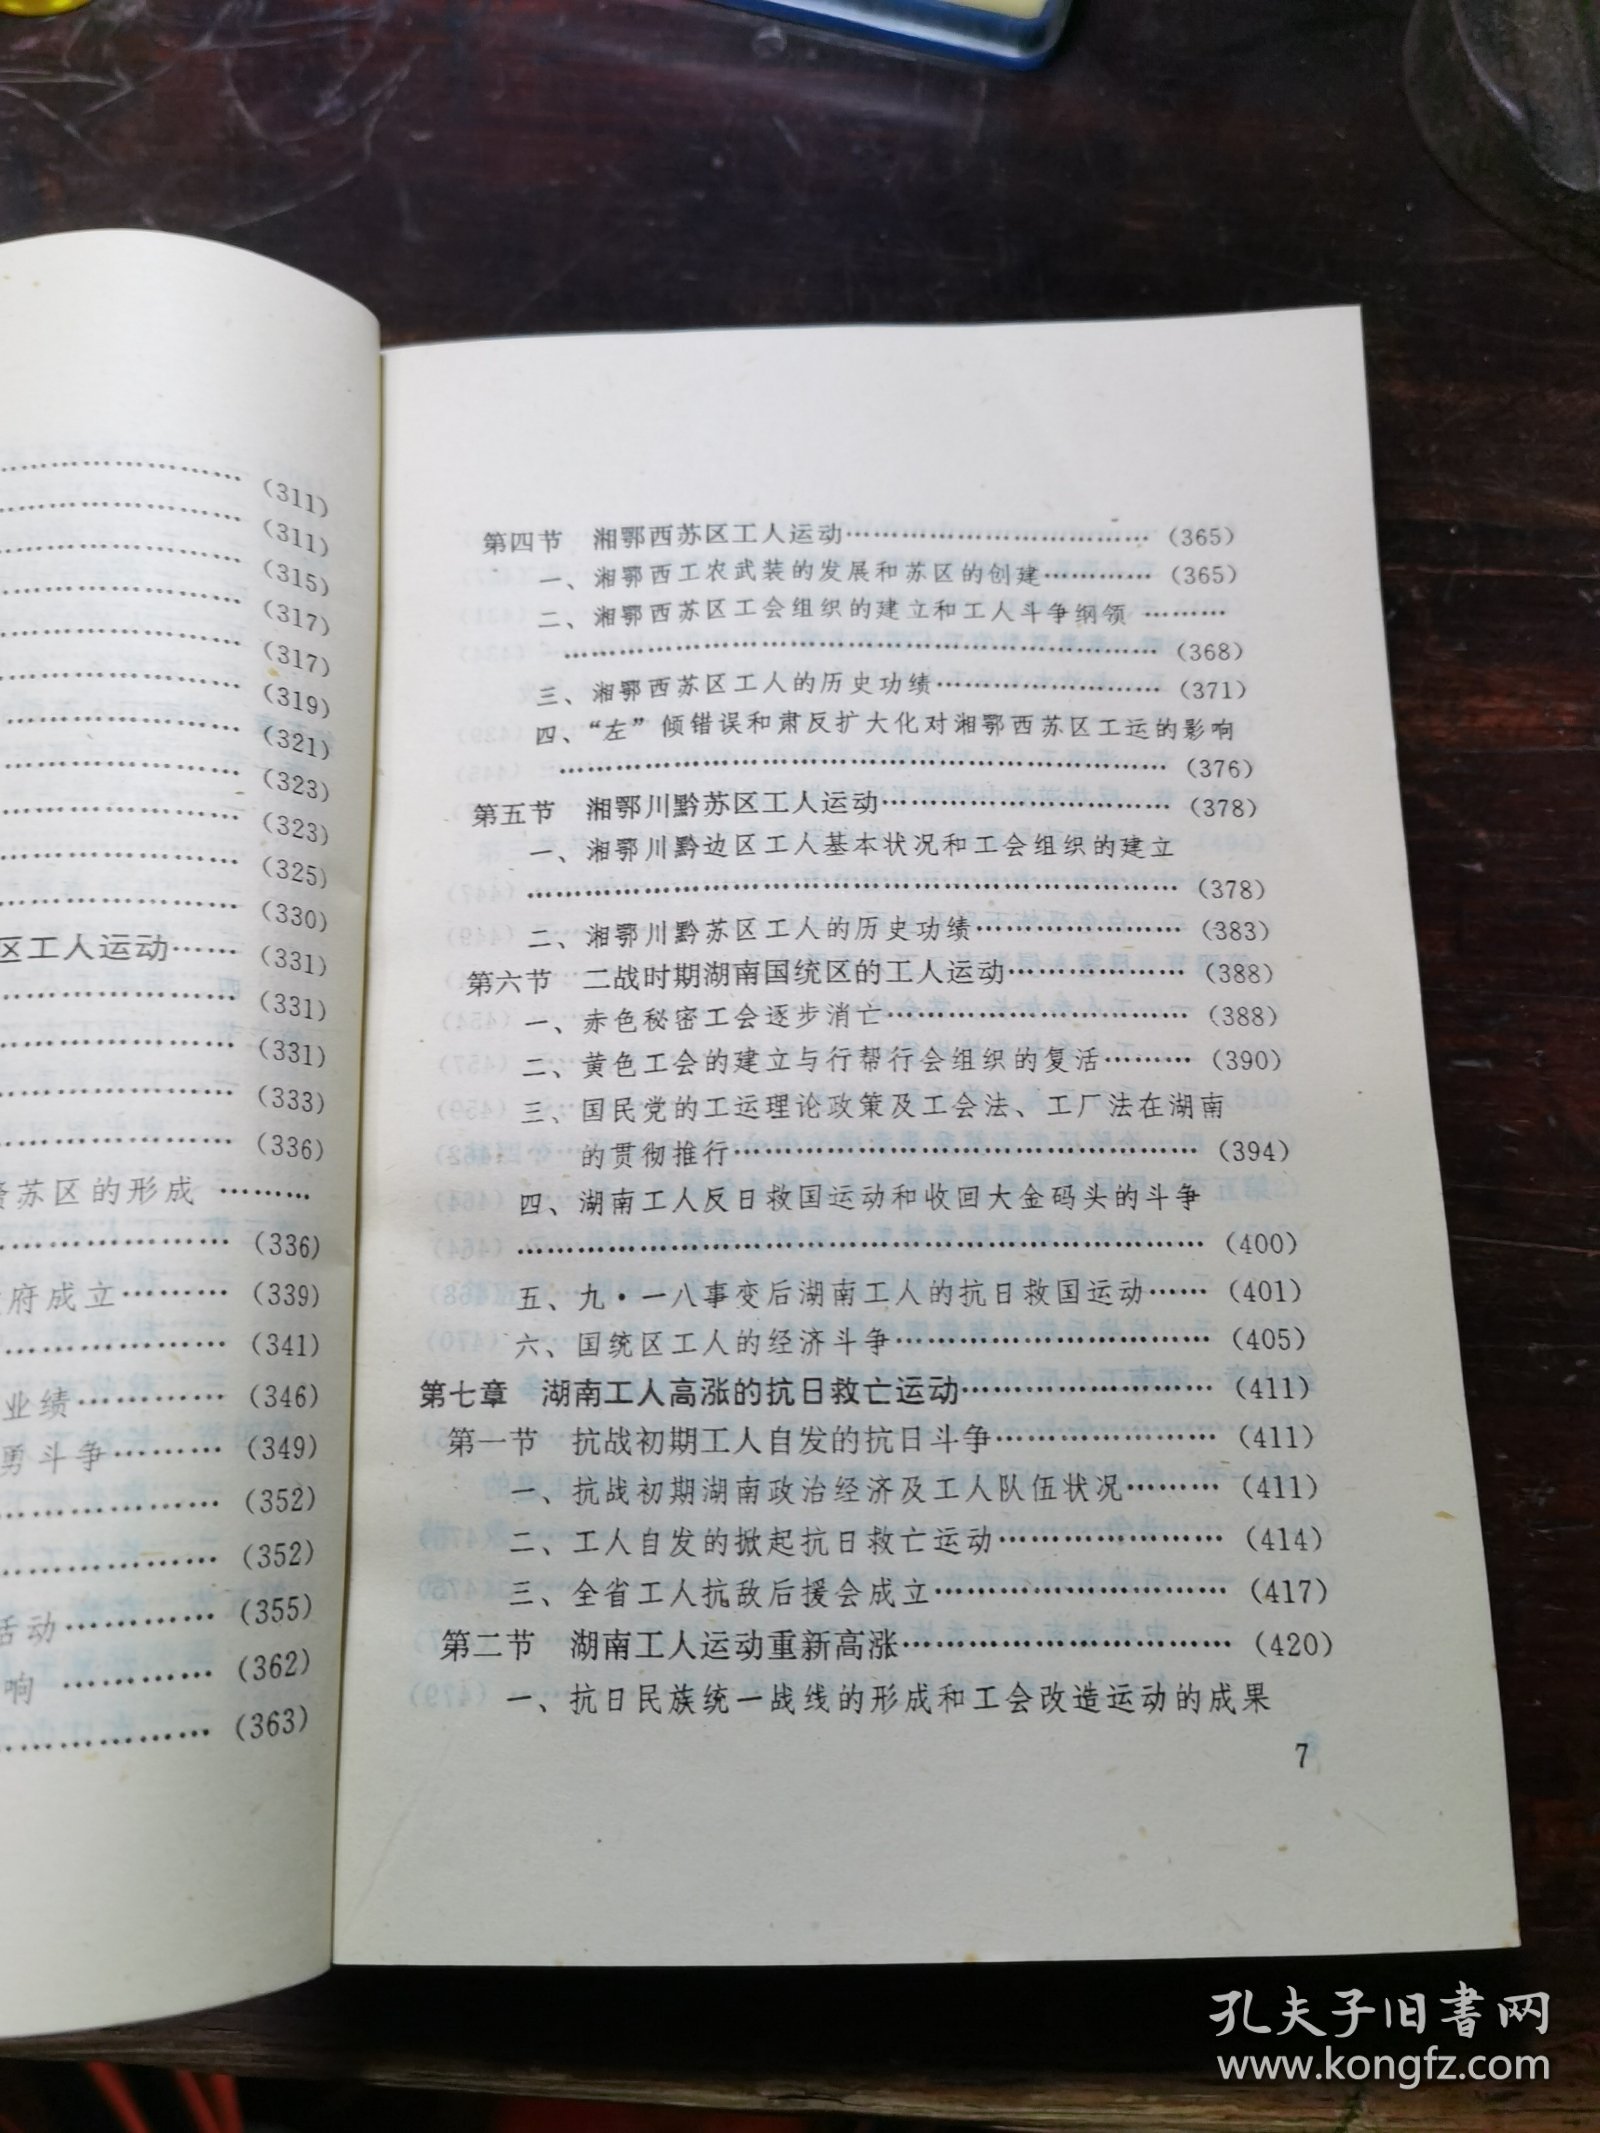 ……(311)
……(311)
……(315)
……(317)
……(317)
……(319)
……(321)
……(323)
……(323)
……(325)
……(330)
区工人运动……(331)
……(331)
……(331)
……(333)
……(336)
苏区的形成………
……(336)
府成立………(339)
……(341)
业绩………(346)
勇斗争………(349)
……(352)
……(352)
活动………(355)
响………(362)
……(363)
第四节 湘鄂西苏区工人运动……(365)
一、湘鄂西工农武装的发展和苏区的创建…………(365)
二、湘鄂西苏区工会组织的建立和工人斗争纲领………
……(368)
三、湘鄂西苏区工人的历史功绩……(371)
四、“左”倾错误和肃反扩大化对湘鄂西苏区工运的影响
……(376)
第五节 湘鄂川黔苏区工人运动……(378)
一、湘鄂川黔边区工人基本状况和工会组织的建立
……(378)
二、湘鄂川黔苏区工人的历史功绩……(383)
第六节 二战时期湖南国统区的工人运动……(388)
一、赤色秘密工会逐步消亡……(388)
二、黄色工会的建立与行帮行会组织的复活………(390)
三、国民党的工运理论政策及工会法、工厂法在湖南
的贯彻推行……(394)
四、湖南工人反日救国运动和收回大金码头的斗争
……(400)
五、九·一八事变后湖南工人的抗日救国运动……(401)
六、国统区工人的经济斗争……(405)
第七章 湖南工人高涨的抗日救亡运动……(411)
第一节 抗战初期工人自发的抗日斗争……(411)
一、抗战初期湖南政治经济及工人队伍状况………(411)
二、工人自发的掀起抗日救亡运动……(414)
三、全省工人抗敌后援会成立……(417)
第二节 湖南工人运动重新高涨……(420)
一、抗日民族统一战线的形成和工会改造运动的成果
7
孔夫子旧书网
www.kongfz.com